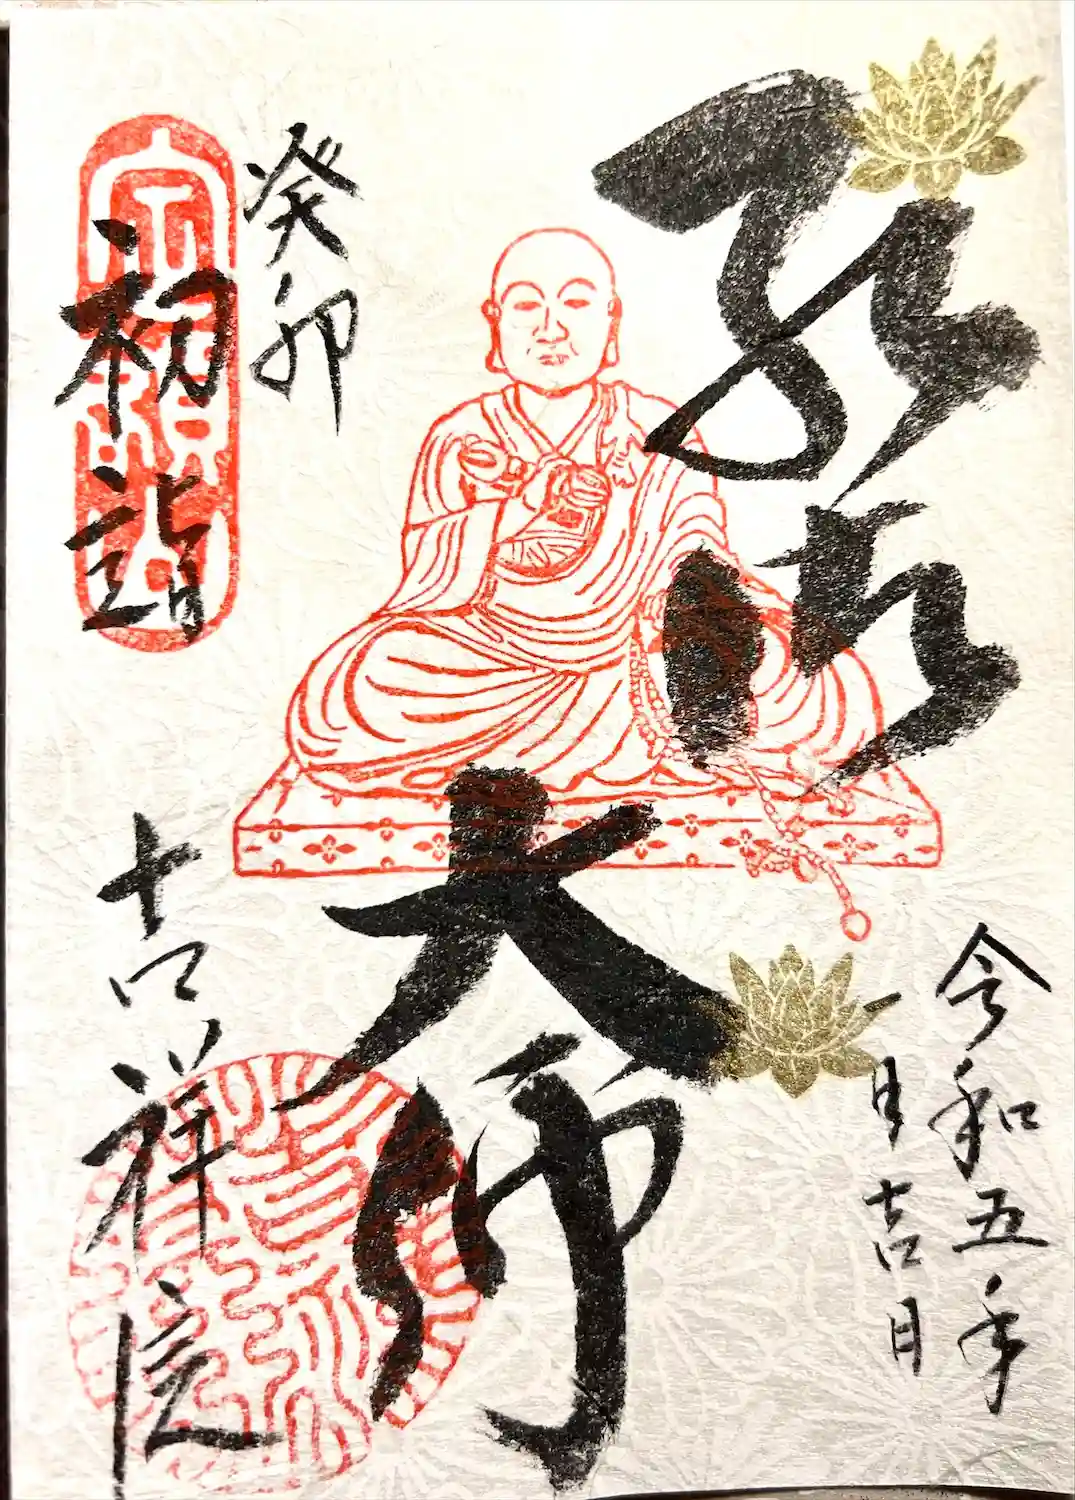 弘法
大師
令和五年
一月吉日
癸卯
初詣
吉祥院